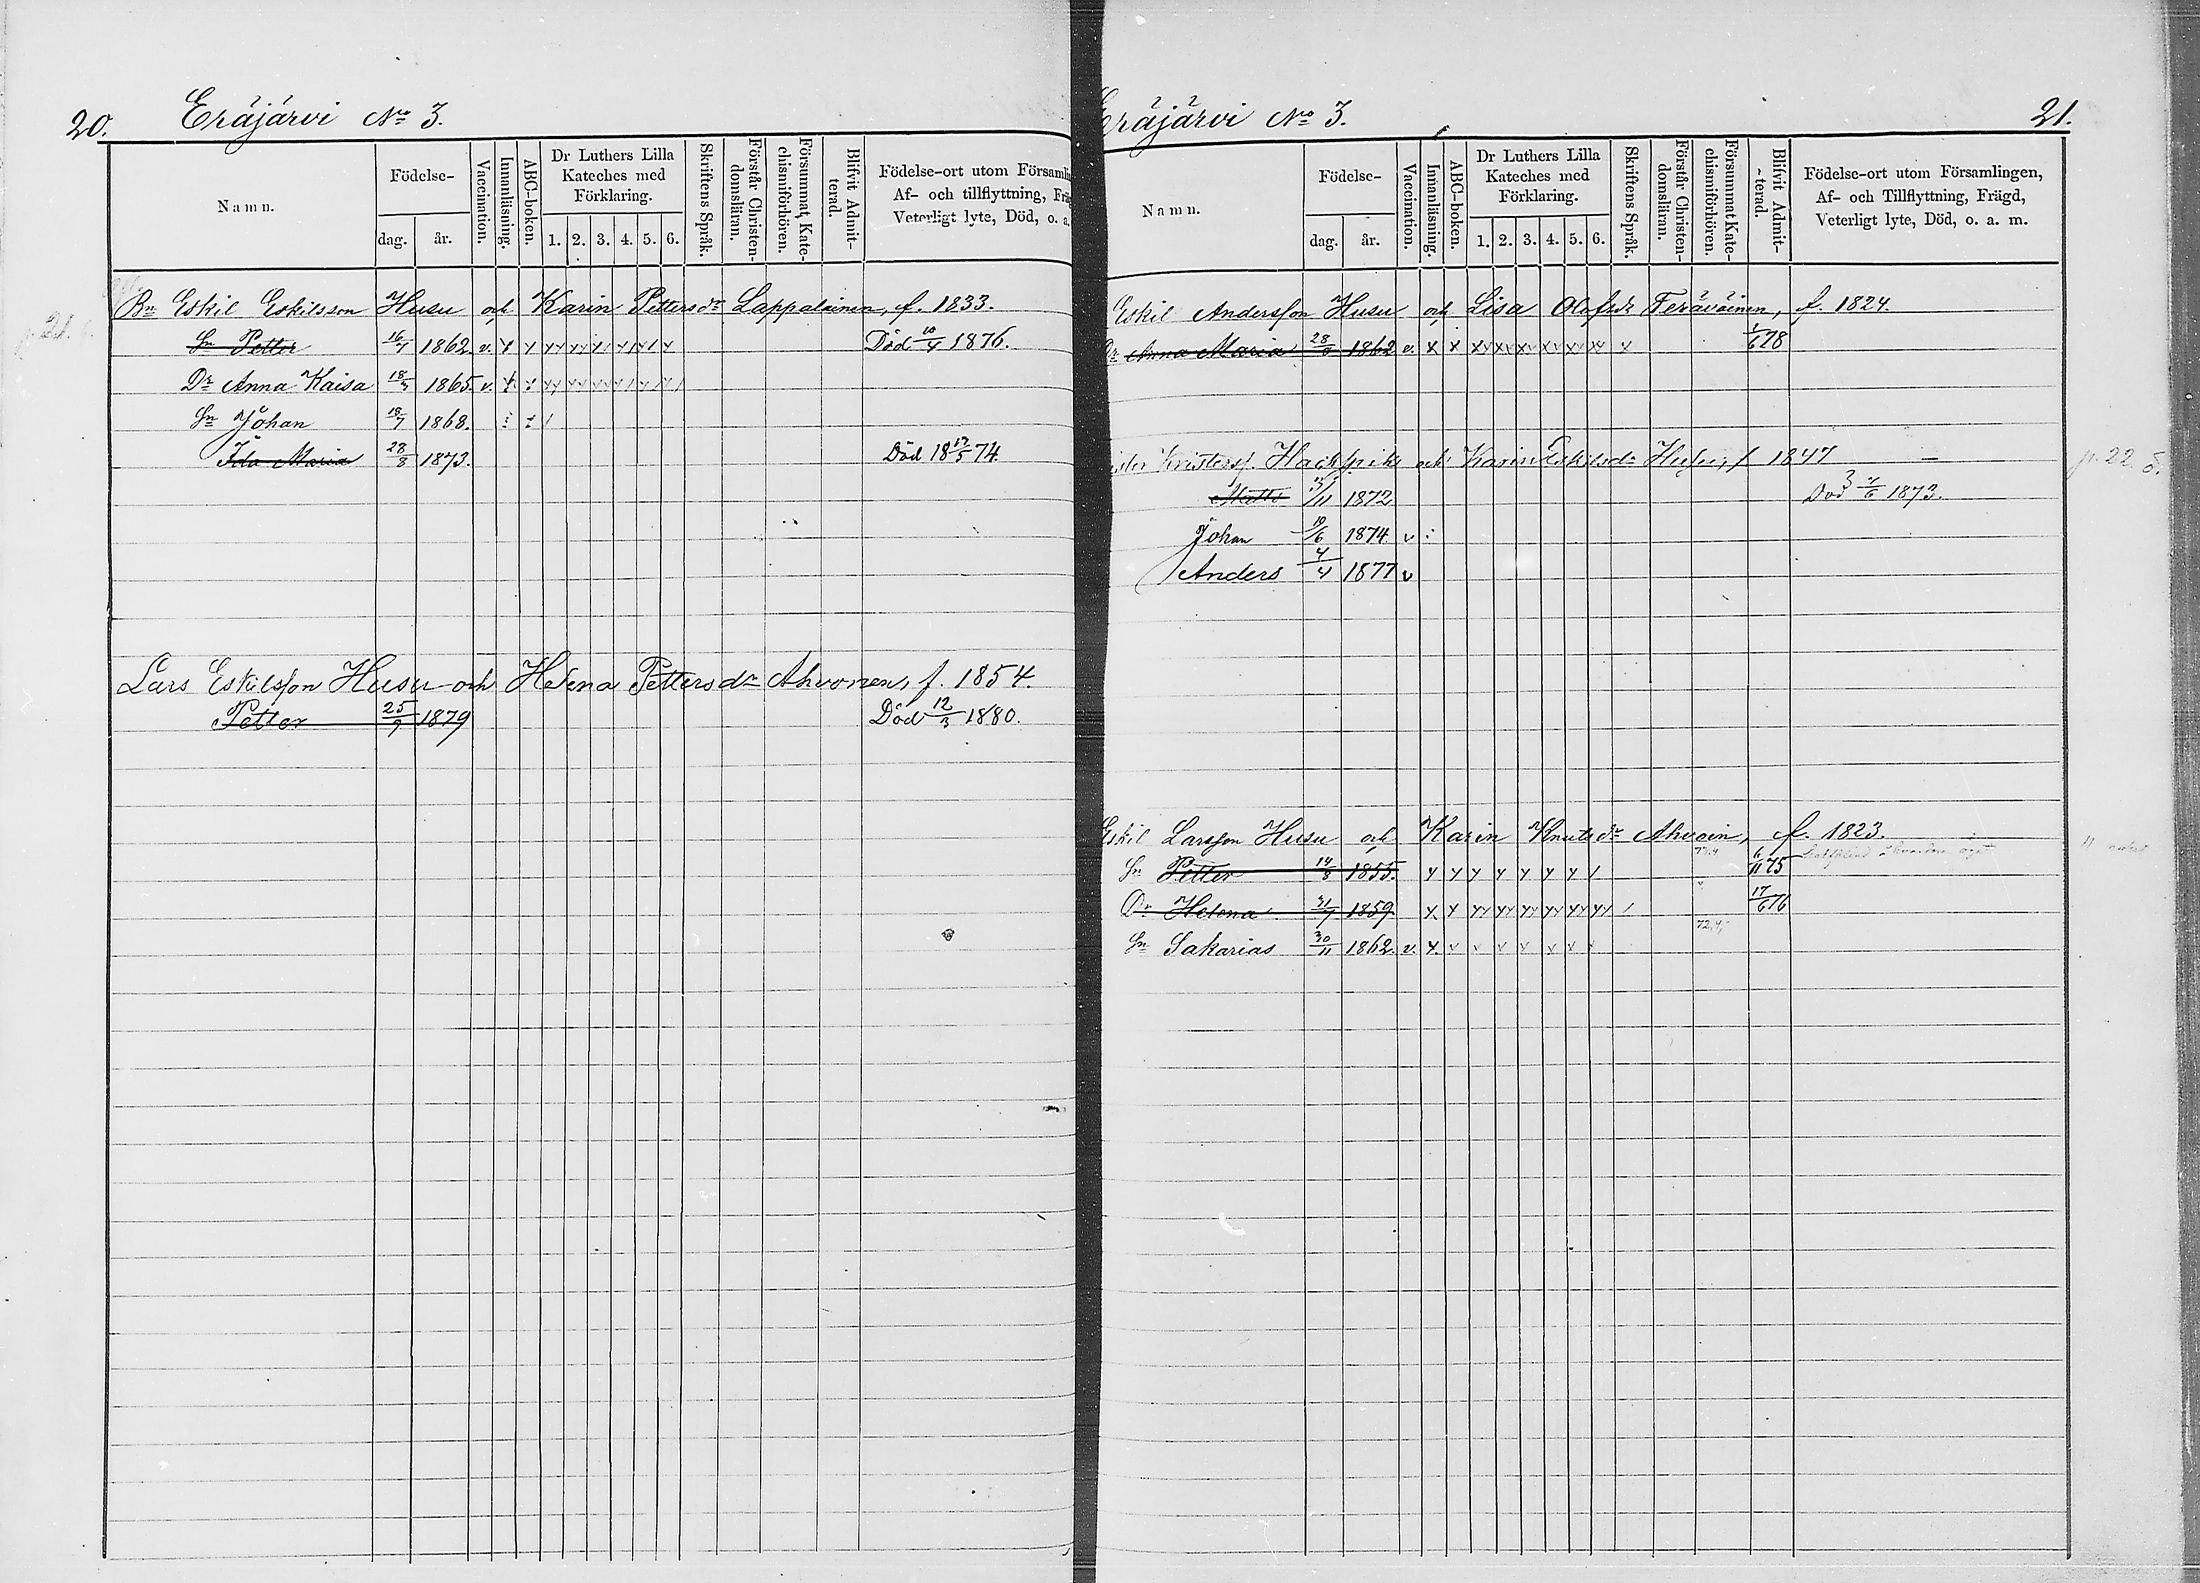 20. Eräjärvi No 3.
Namn. Födelse- dag. år. Vaccination. Innanläsning. ABC-boken. Dr Luthers Lilla Kateches med Förklaring. 1. 2. 3. 4. 5. 6. Skriftens Språk. Förstår Christen-domsläran. Försummat Kate-chismiförhören. Blifvit Admit-terad. Födelse-ort utom Församlin
Af- och tillflyttning, Fräg
Veterligt lyte, Död, o. a.
Bn Eskil Eskilsson Husu och Karin Pettersdr Lappalainen, f. 1833.
Sn Petter 16/7 1862. v. Död 10/4 1876.
Dr Anna Kaisa 18/3 1865. v.
Sn Johan 18/7 1868.
Ida Maria 28/8 1873. Död 18 17/5 74.
Lars Eskilsson Husu och Helena Pettersdr Ahvonen, f. 1854.
Petter 25/9 1879 Död 12/3 1880.
Eräjärvi No 3. 21.
Namn. Födelse- dag. år. Vaccination. Innanläsning. ABC-boken. Dr Luthers Lilla Kateches med Förklaring. 1. 2. 3. 4. 5. 6. Skriftens Språk. Förstår Christen-domsläran. Försummat Kate-chismiförhören. Blifvit Admit-terad. Födelse-ort utom Församlingen,
Af- och Tillflyttning, Frägd,
Veterligt lyte, Död, o. a. m.
Eskil Andersson Husu och Lisa Olofsdr Teräväinen, f. 1824.
Dr Anna Maria 1862 v. 78
Kristerss. och Karin Eskilsdr Husu, f. 1847 p. 22.
Matts 11 1872 Död 6 1873.
Johan 19/6 1874 v
Anders 4/4 1877 v
Eskil Larsson Husu och Karin Knutsdr Ahvoin, f. 1823.
Sn Petter 14/8 1855. 6/11 75
Dr Helena 31/7 1859 17/6 76
Sn Sakarias 30/11 1862. v.